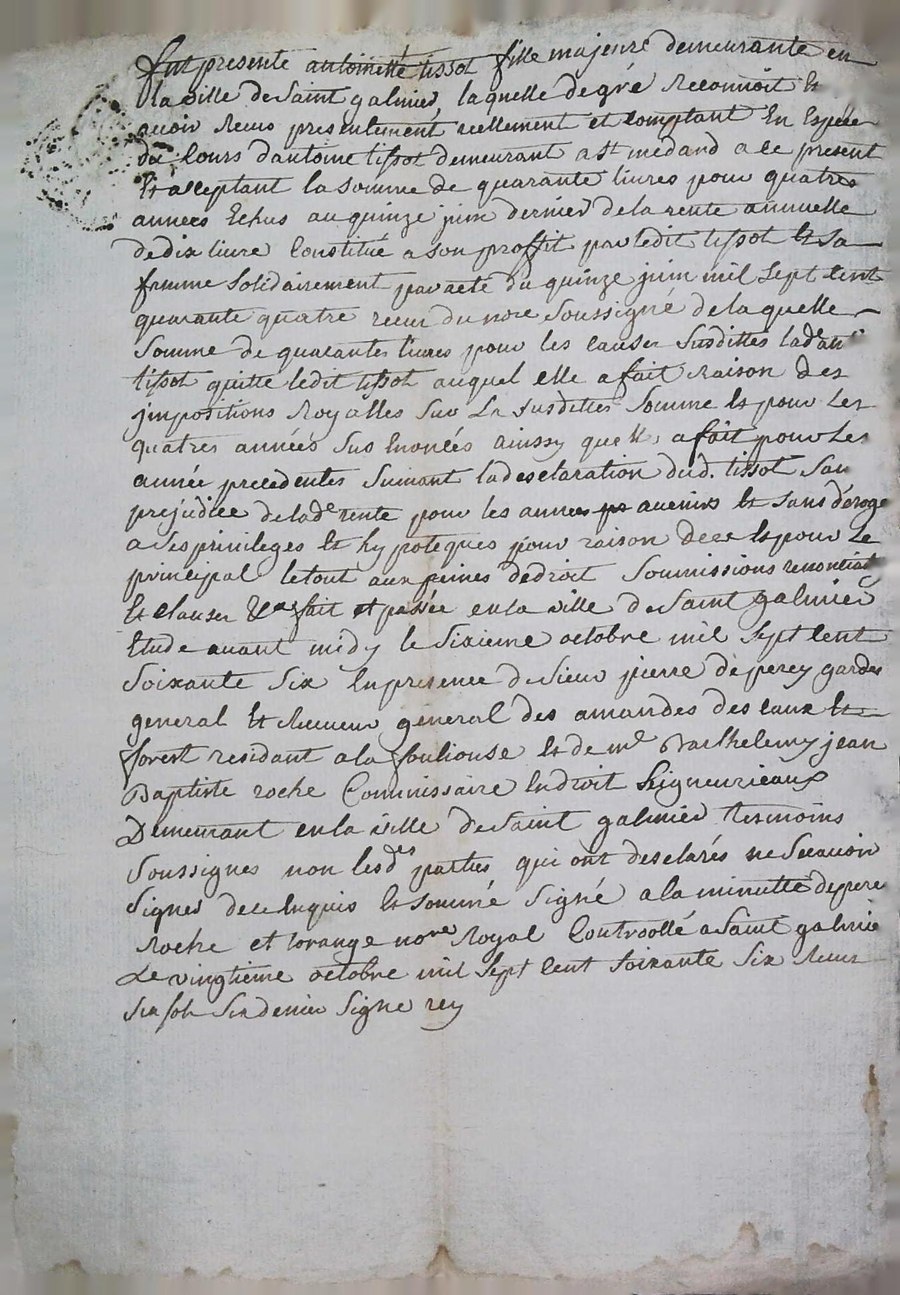 fut presente antoinette tissot fille majeure demeurante en
la ville de Saint galmier, laquelle de gré Reconnoit Et
avoir Receus presentement reellement et comptant En Espece
du Cours d'antoine tissot demeurant a St medard a ce present
Et acceptant la somme de quarante livres pour quatres
années Echus au quinze juin dernier de la rente annuelle
de dix livre Constitué a son proffit par ledit tissot Et sa
femme solidairement par acte du quinze juin mil sept Cent
quarante quatre receu du nore Soussigné de laquelle
Somme de quarantes livres pour les causes Susdittes lade ant
tissot quitte ledit tissot auquel elle a fait Raison des
jmpositions Royalles Sur La susdittes Somme Et pour Les
quatres années Sus Enoncés ainssy quelle a fait pour Les
année precedentes Suivant la desclaration dud. tissot San
prejudice de lade rente pour les années avenirs Et sans deroge
a Ses privileges Et hypoteques pour raison de ce Et pour Le
principal le tout aux peines de droit Soumissions renonciat
Et clauses &a fait et passée en la ville de Saint galmier
Etude avant midy le Sixieme octobre mil Sept Cent
Soixante Six En presence de Sieur pierre deperey gardes
general Et Receveur general des amandes des Eaux Et
forest residant a la fouliouse Et de me Barthelemy jean
Baptiste roche Commissaire En droit Seigneurieaux
Demeurant en la ville de Saint galmier tesmoins
Soussignes non lesdes parties qui ont desclarés ne Scavoir
Signer de ce Enquis Et sommé Signé a la minutte depere
Roche et lorange nore Royal Controollé a Saint galmie
Le vingtieme octobre mil Sept Cent Soixante Six Receu
Six sols Six denier Signe rey